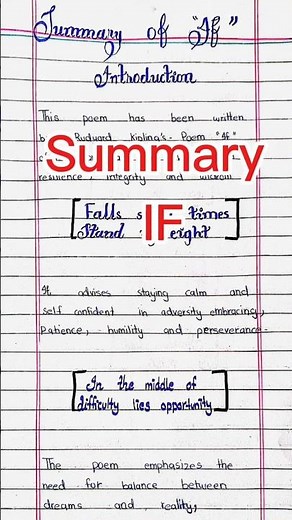 Summary of "If"
Introduction
This poem has been written
Rudyard Kipling's Poem "If"
Summary
resilience, integrity and wisdom
IF
Falls times
Stand eight
It advises staying calm and
self confident in adversity embracing,
Patience, humility and perseverance-
In the middle of
difficulty lies opportunity
The poem emphasizes the
need for balance between
dreams and reality,